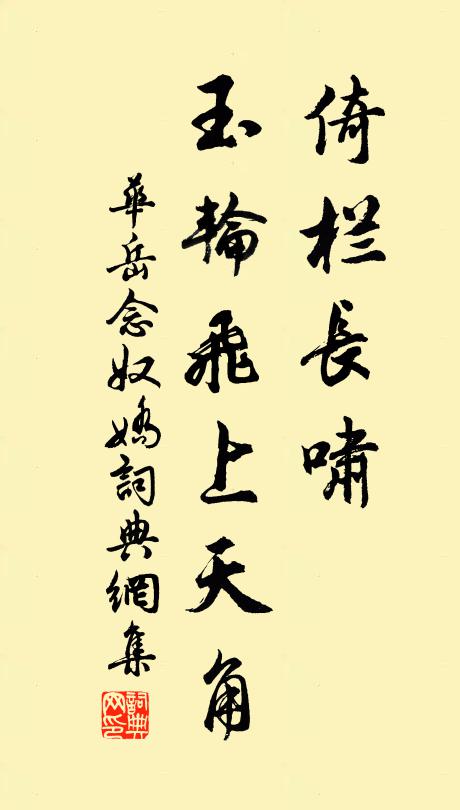 倚栏長嘯
玉輪飛上天角
華岳念奴嬌詞典網集
詞典网印